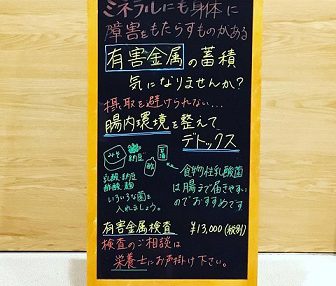 ミネラルにも身体に
障害をもたらすものがある
有害金属の蓄積
気になりませんか?
摂取を避けられない…
腸内環境を整えて
デトックス
みそ
納豆
乳酸 納豆
酢酸 麹
いろいろな菌を
入れましょう。
食物性乳酸菌
は腸まで届きやすい
のでおすすめです
有害金属検査 ¥13,000(税別)
検査のご相談は
栄養士にお声掛け下さい。